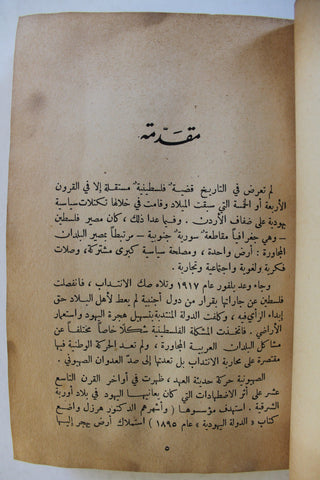 مقدمة
لم تعرض في التاريخ قضية فلسطينية مستقلة إلا في القرون
الأربعة أو الخمسة التي سبقت الميلاد وقامت في خلالها تكتلات سياسية
يهودية على ضفاف الأردن . وفيما عدا ذلك ، كان مصير فلسطين
– وهي جغرافياً مقاطعة سورية جنوبية – مرتبطاً بمصير البلدان
المجاورة : أرض واحدة ، ومصلحة سياسية كبرى مشتركة ، وصلات
فكرية ولغوية واجتماعية وتجارية .
وجاء وعد بلفور عام ١٩١٧ وتلاه صك الانتداب ، فانفصلت
فلسطين عن جاراتها بقرار من دول أجنبية لم يعط لأهل البلاد حق
إبداء الرأي فيه ، وكلفت الدولة المنتدبة بتسهيل هجرة اليهود واستعمار
الأراضي . فاتخذت المشكلة الفلسطينية شكلاً خاصاً مختلفاً عن
مشاكل البلدان العربية المجاورة ، ولم تعد الحركة الوطنية فيها
مقتصرة على محاربة الانتداب بل تعدتها إلى صد العدوان الصهيوني .
الصهيونية حركة حديثة العهد ، ظهرت في أواخر القرن التاسع
عشر على أثر الاضطهادات التي كان يعانيها اليهود في بلاد أوربة
الشرقية . استهدف مؤسسوها ( وأشهرهم الدكتور هرزل واضع
كتاب « الدولة اليهودية » عام ١٨٩٥ ) استملاك أرض يهجر إليها
٥